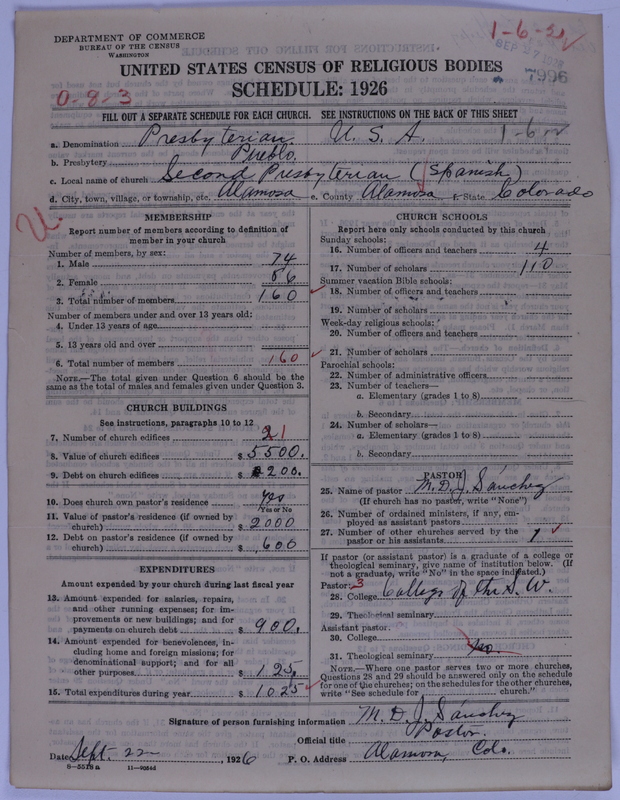 DEPARTMENT OF COMMERCE
BUREAU OF THE CENSUS
WASHINGTON
SEP 27 1926
7996
UNITED STATES CENSUS OF RELIGIOUS BODIES
SCHEDULE: 1926
0-8-3
FILL OUT A SEPARATE SCHEDULE FOR EACH CHURCH. SEE INSTRUCTIONS ON THE BACK OF THIS SHEET
a. Denomination Presbyterian U. S. A.
b. Presbytery Pueblo.
c. Local name of church Second Presbyterian (Spanish)
d. City, town, village, or township, etc. Alamosa e. County Alamosa f. State Colorado
MEMBERSHIP
Report number of members according to definition of member in your church
Number of members, by sex:
1. Male 74
2. Female 86
3. Total number of members 160
Number of members under and over 13 years old:
4. Under 13 years of age
5. 13 years old and over
6. Total number of members 160
NOTE.—The total given under Question 6 should be the same as the total of males and females given under Question 3.
CHURCH BUILDINGS
See instructions, paragraphs 10 to 12
7. Number of church edifices 2 1
8. Value of church edifices $ 5500.
9. Debt on church edifices $ 200.
10. Does church own pastor's residence Yes
Yes or No
11. Value of pastor's residence (if owned by church) $ 2000
12. Debt on pastor's residence (if owned by church) $ 600
EXPENDITURES
Amount expended by your church during last fiscal year
13. Amount expended for salaries, repairs, and other running expenses; for improvements or new buildings; and for payments on church debt $ 900.
14. Amount expended for benevolences, including home and foreign missions; for denominational support; and for all other purposes $ 125.
15. Total expenditures during year $ 1025
CHURCH SCHOOLS
Report here only schools conducted by this church
Sunday schools:
16. Number of officers and teachers 4
17. Number of scholars 110
Summer vacation Bible schools:
18. Number of officers and teachers
19. Number of scholars
Week-day religious schools:
20. Number of officers and teachers
21. Number of scholars
Parochial schools:
22. Number of administrative officers
23. Number of teachers—
a. Elementary (grades 1 to 8)
b. Secondary
24. Number of scholars—
a. Elementary (grades 1 to 8)
b. Secondary
PASTOR
25. Name of pastor M. D. J. Sánchez
(If church has no pastor, write "None")
26. Number of ordained ministers, if any, employed as assistant pastors
27. Number of other churches served by the pastor or his assistants
If pastor (or assistant pastor) is a graduate of a college or theological seminary, give name of institution below. (If not a graduate, write "No" in the space indicated.)
Pastor: 3
28. College College of the S. W.
29. Theological seminary
Assistant pastor:
30. College
31. Theological seminary
NOTE.—Where one pastor serves two or more churches, Questions 28 and 29 should be answered only on the schedule for one of the churches; on the schedules for the other churches, write "See schedule for church."
Signature of person furnishing information M. D. J. Sánchez
Official title Pastor.
Date Sept. 22, 1926 P. O. Address Alamosa, Colo.
8-5518 a 11-90646